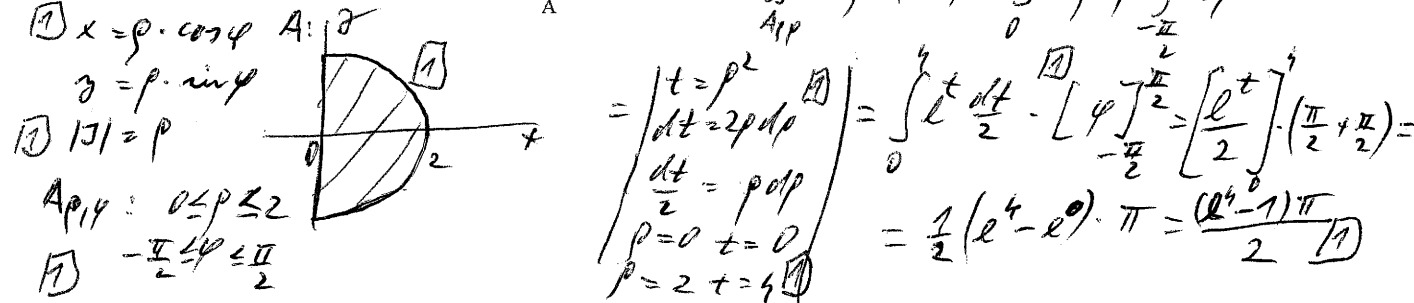 [1] x = ρ · cos φ
y = ρ · sin φ
[1] |J| = ρ
A_{ρ,φ} : 0 ≤ ρ ≤ 2
[1] -π/2 ≤ φ ≤ π/2
A: y
[1]
0 2 x
A
A_{ρ,φ} 0 -π/2
= | t = ρ² [1]
dt = 2ρ dρ
dt/2 = ρ dρ
ρ = 0 t = 0
ρ = 2 t = 4 [1] |
= ∫_0^4 e^t dt/2 · [1] [φ]_{-π/2}^{π/2} = [e^t/2]_0^4 · (π/2 + π/2) =
= 1/2 (e^4 - e^0) · π = (e^4 - 1)π/2 [1]